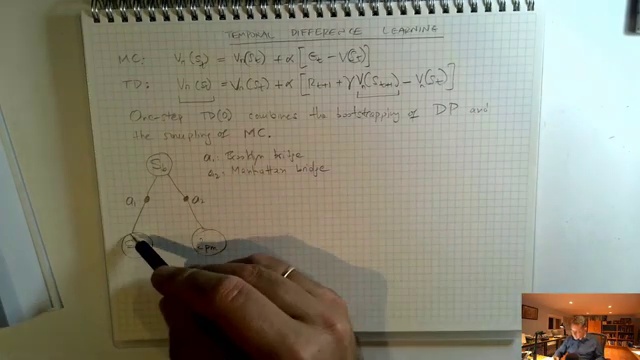 TEMPORAL DIFFERENCE LEARNING
MC: Vπ(St) = Vπ(St) + α [Gt − V(St)]
TD: Vπ(St) = Vπ(St) + α [Rt+1 + γVπ(St+1) − Vπ(St)]
One-step TD(0) combines the bootstrapping of DP and
the sampling of MC.
St
a1: Brooklyn bridge
a2: Manhattan bridge
a1 a2
pm